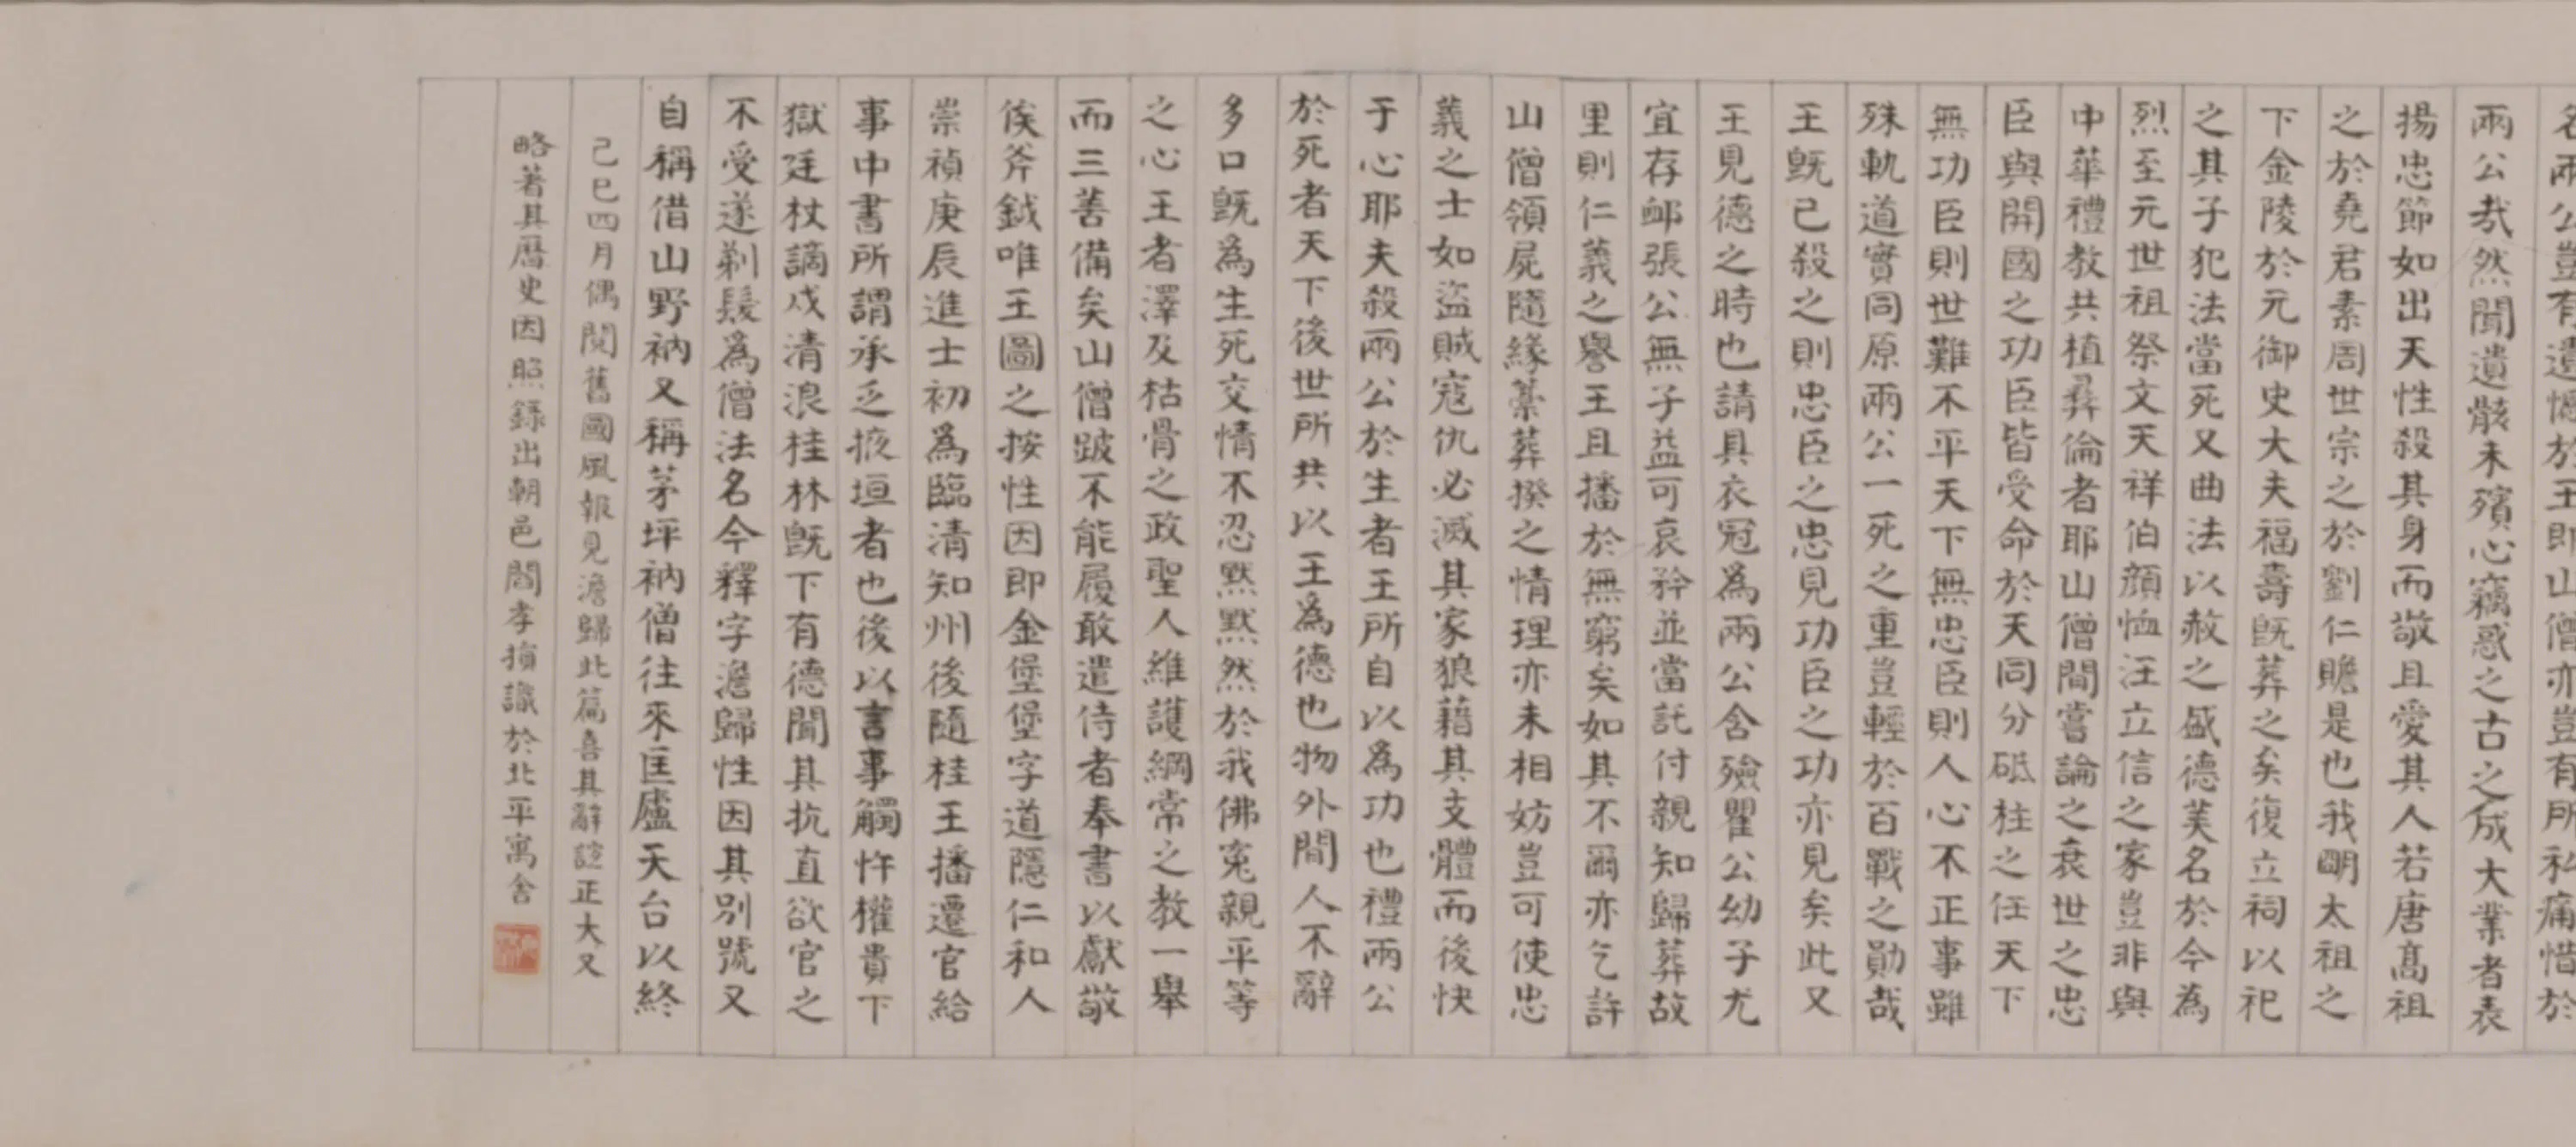 名兩公豈有遺憾於王即山僧亦豈有所私痛惜於
兩公哉然聞遺骸未殯心竊惑之古之成大業者表
揚忠節如出天性殺其身而敬且愛其人若唐髙祖
之於堯君素周世宗之於劉仁贍是也我明太祖之
下金陵於元御史大夫福壽既葬之矣復立祠以祀
之其子犯法當死又曲法以赦之盛德美名於今為
烈至元世祖祭文天祥伯顔恤汪立信之家豈非與
中華禮教共植彛倫者耶山僧間嘗論之衰世之忠
臣與開國之功臣皆受命於天同分砥柱之任天下
無功臣則世難不平天下無忠臣則人心不正事雖
殊軌道實同原兩公一死之重豈輕於百戰之勛哉
王既已殺之則忠臣之忠見功臣之功亦見矣此又
王見德之時也請具衣冠爲兩公含殮瞿公幼子尤
宜存䘏張公無子益可哀矜並當託付親知歸葬故
里則仁義之譽王且播於無窮矣如其不爾亦乞許
山僧領屍隨緣藁葬揆之情理亦未相妨豈可使忠
義之士如盜賊寇仇必滅其家狼藉其支體而後快
于心耶夫殺兩公於生者王所自以為功也禮兩公
於死者天下後世所共以王為德也物外閒人不辭
多口既為生死交情不忍默默然於我佛寃親平等
之心王者澤及枯骨之政聖人維護綱常之教一舉
而三善備矣山僧跛不能履敢遣侍者奉書以獻敬
俟斧鉞唯王圖之按性因即金堡堡字道隱仁和人
崇禎庚辰進士初爲臨清知州後隨桂王播遷官給
事中書所謂承乏掖垣者也後以言事觸忤權貴下
獄廷杖謫戍清浪桂林既下有德聞其抗直欲官之
不受遂剃髮爲僧法名今釋字澹歸性因其別號又
自稱借山野衲又稱茅坪衲僧往來匡廬天台以終
己巳四月偶閱舊國風報見澹歸此篇喜其辭誼正大又
略著其曆史因照錄出朝邑閻孝擯識於北平寓舍